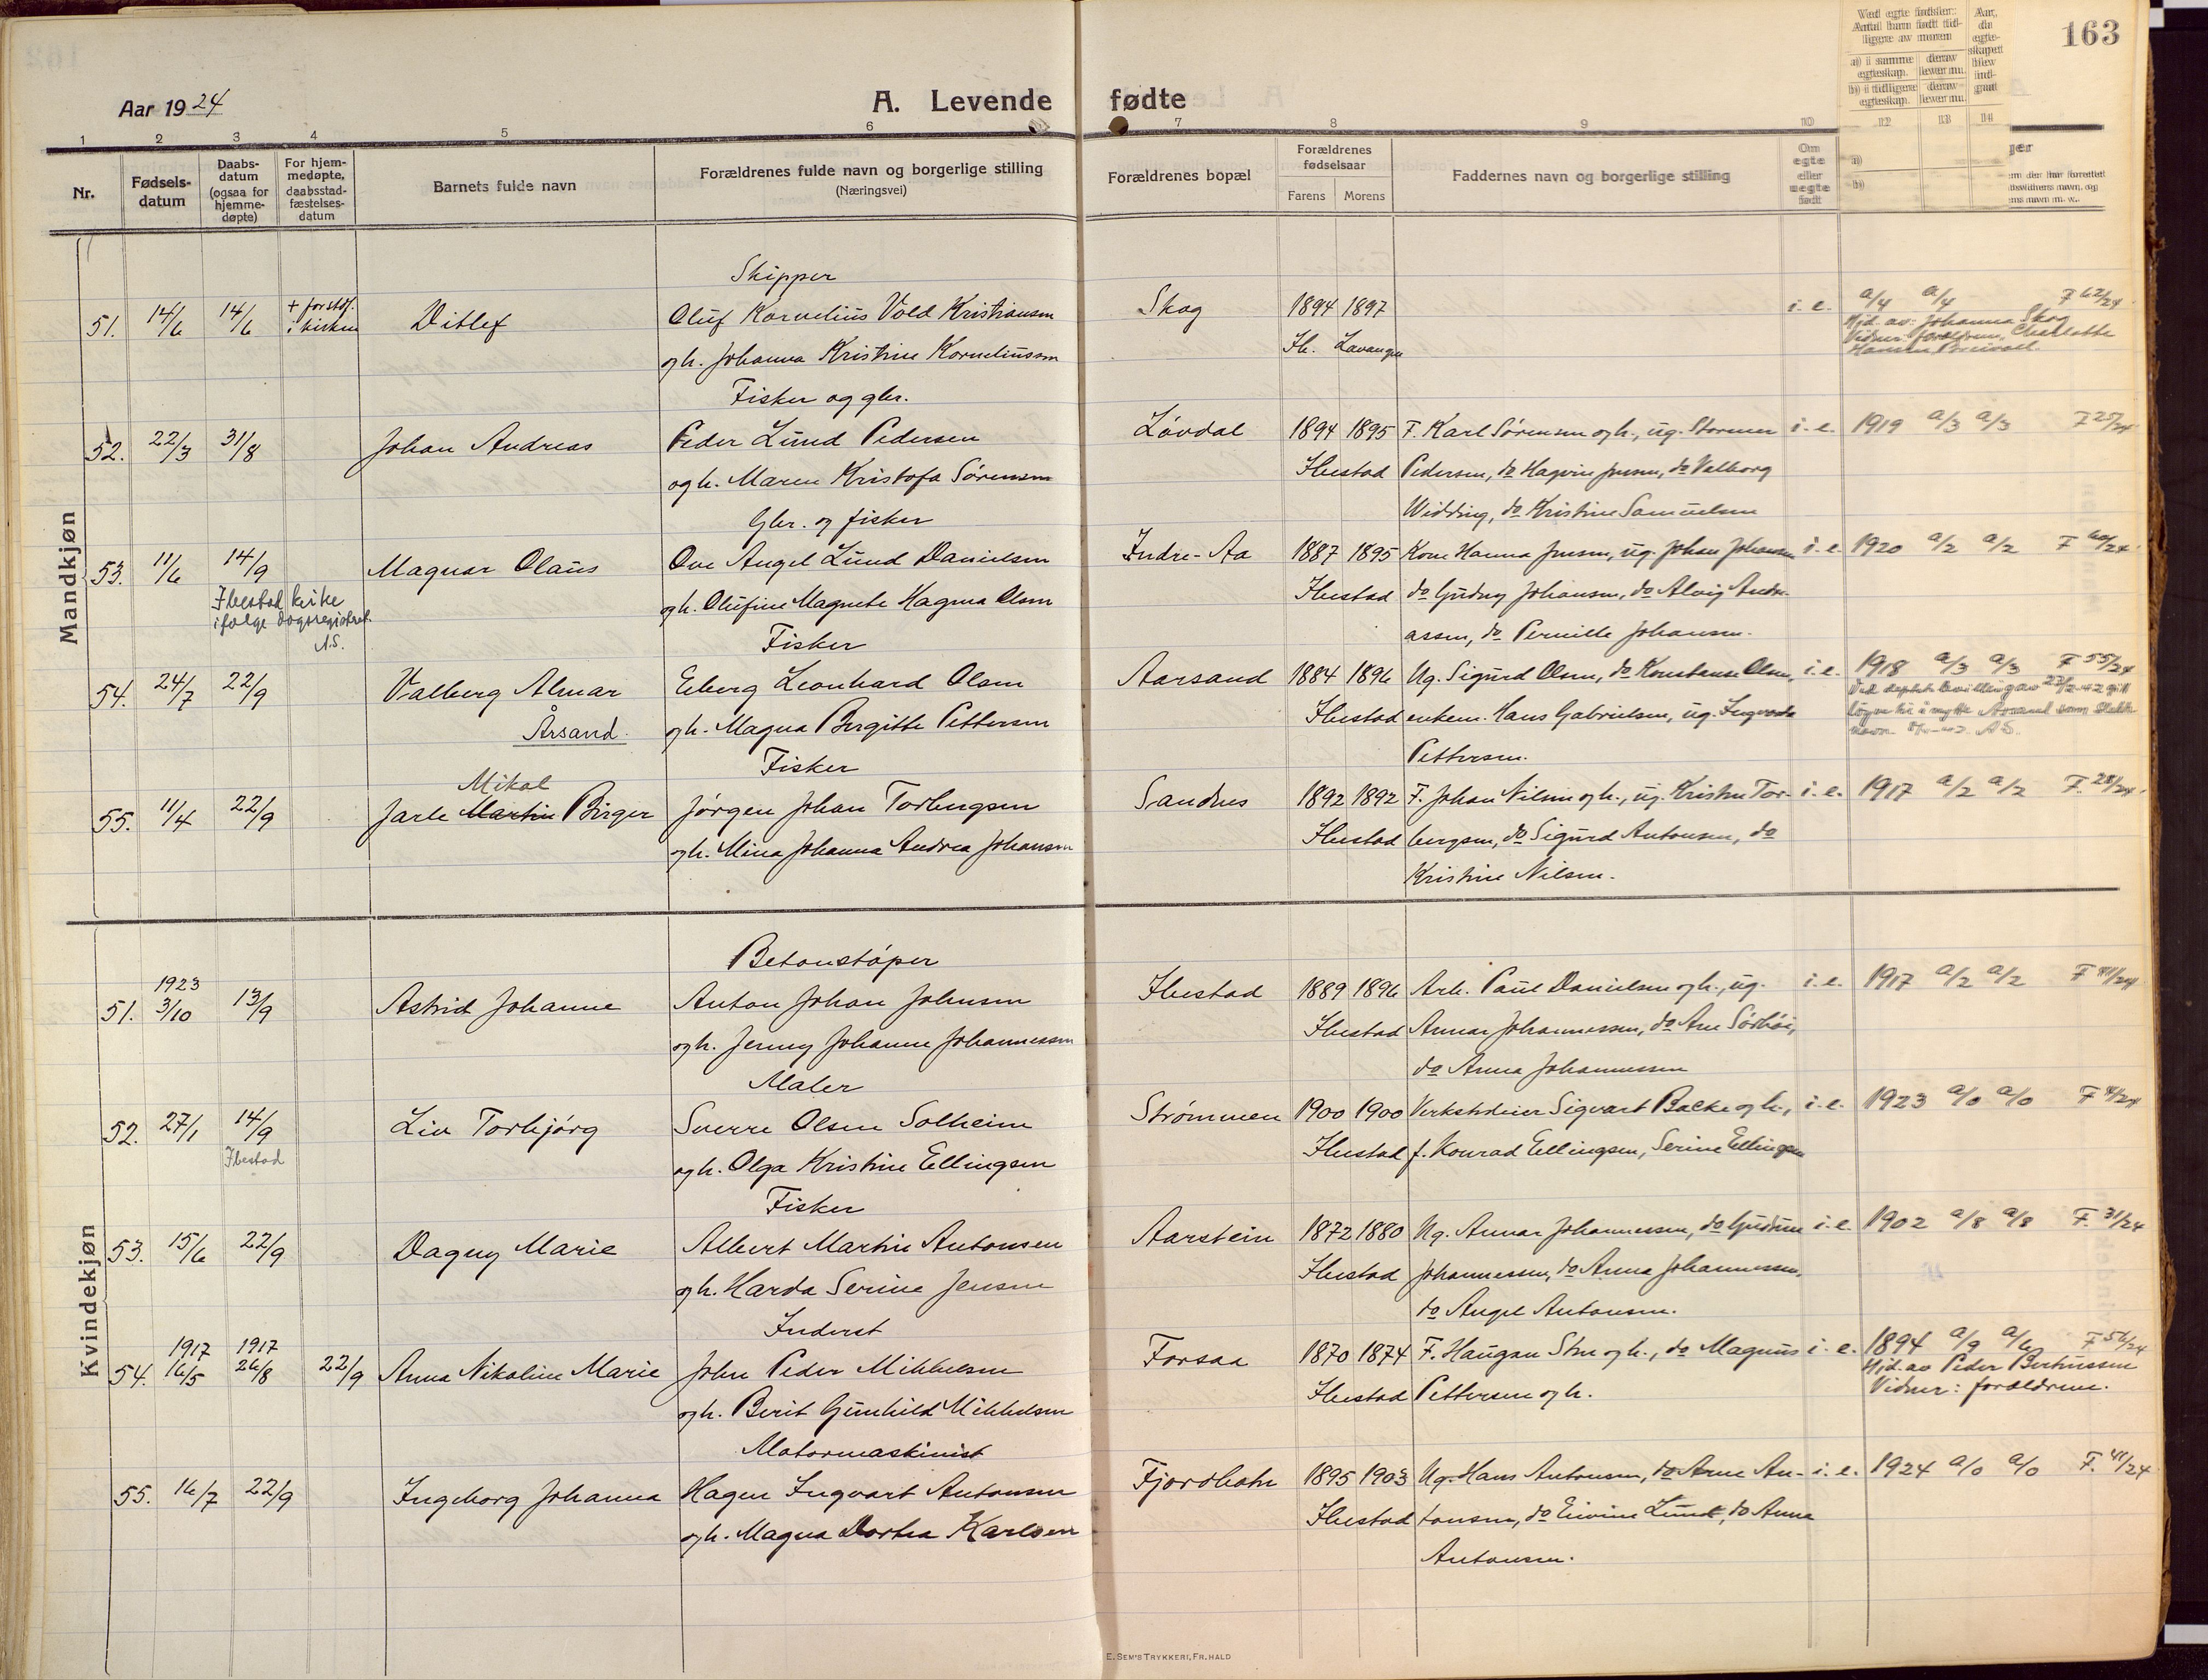 163
Ved egte fødsler: Antal barn født tidligere av moren
a) i samme egteskap. derav lever nu.
b) i tidligere egteskap. derav lever nu.
Aar, da egteskapet blev indgaat
Aar 1924
A. Levende fødte
1 2 3 4 5 6 7 8 9 10 12 13 14
Nr.
Fødselsdatum
Daabsdatum (ogsaa for hjemmedøpte)
For hjemmedøpte, daabsstadfæstelsesdatum
Barnets fulde navn
Forældrenes fulde navn og borgerlige stilling
(Næringsvei)
Forældrenes bopæl
Forældrenes fødselsaar
Farens Morens
Faddernes navn og borgerlige stilling
Om egte eller uegte født
a)
b)
Mandkjøn
Skipper
51. 14/6 14/6 + før stdf. i kirken Ditlef Oluf Kornelius Vold Kristiansen Skog 1894 1897 i. e. a/4 a/4 F 62/24
og h. Johanna Kristine Korneliussen Ib. Lavangen
Hjd. av: Johanna Skog
Vidner: forældrene, Charlotte
Hansen
Fisker og gbr.
52. 22/3 31/8 Johan Andreas Peder Lund Pedersen Løvdal 1894 1895 F. Karl Sørensen og h., ug. Stormer i. e. 1919 a/3 a/3 F 25/24
og h. Maren Kristofa Sørensen Ibestad Pedersen, do Hagvin Jensen, do Valborg
Widding, do Kristine Samuelsen
Gbr. og fisker
53. 11/6 14/9 Magnar Olaus Ove Angel Lund Danielsen Indre-Aa 1887 1895 Kone Hanna Jensen, ug. Johan Johansen i. e. 1920 a/2 a/2 F 60/24
Ibestad kirke
ifølge dagsregisteret.
A.S.
og h. Olufine Magnete Hagma Olsen Ibestad do Gudny Johansen, do Alvig Andreassen, do Pernille Johansen.
Fisker
54. 24/7 22/9 Valberg Almar Edberg Leonhard Olsen Aarsand 1884 1896 Ug. Sigurd Olsen, do Konstanse Olsen, i. e. 1918 a/3 a/3 F 55/24
Årsand.
og h. Magna Birgitte Pettersen Ibestad enkem. Hans Gabrielsen, ug. Ingvarda
Pettersen.
Fisker
Mikal
55. 11/4 22/9 Jarle Martin Birger Jørgen Johan Torbergsen Sandnes 1892 1892 F. Johan Nilsen og h., ug. Kristen Tor- i. e. 1917 a/2 a/2 F. 28/24
og h. Mina Johanna Andrea Johansen Ibestad bergsen, do Sigurd Antonsen, do
Kristine Nilsen.
Kvindekjøn
Betonstøper
1923
51. 3/10 13/9 Astrid Johanne Anton Johan Johnsen Ibestad 1889 1896 Arb. Paul Danielsen og h., ug. i. e. 1917 a/2 a/2
og h. Jenny Johanne Johannessen Ibestad Annar Johannessen, do Arne Sørbøi,
do Anna Johannessen
Maler
52. 27/1 14/9 Liv Torbjørg Sverre Olsen Solheim Strømmen 1900 1900 Verkstedeier Sigvart Balke og h., i. e. 1923 a/0 a/0
Ibestad
og h. Olga Kristine Ellingsen Ibestad f. Konrad Ellingsen, Serine Ellingsen
Fisker
53. 15/6 22/9 Dagny Marie Albert Martin Antonsen Aarstein 1872 1880 Ug. Annar Johannessen, do Gudrun i. e. 1902 a/8 a/8 F. 31/24
og h. Harda Serine Jensen Ibestad Johannessen, do Anna Johannessen,
do Angel Antonsen.
Inderst
1917 1917
54. 16/5 26/8 22/9 Anna Nikoline Marie John Peder Mikkelsen Forsaa 1870 1874 F. Haugan Stene og h., do Magnus i. e. 1894 a/9 a/6 F 56/24
og h. Berit Gunhild Mikkelsen Ibestad Pettersen og h.
Hjd. av Peder Berthiussen
Vidner: forældrene.
Motormaskinist
55. 16/7 22/9 Ingeborg Johanna Hagen Ingvart Antonsen Fjordbotn 1895 1903 Ug. Hans Antonsen, do Arne An- i. e. 1924 a/0 a/0 F. 41/24
og h. Magna Dortea Karlsen Ibestad tonsen, do Eivine Lund, do Anna
Antonsen.
E. SEM'S TRYKKERI, FR. HALD